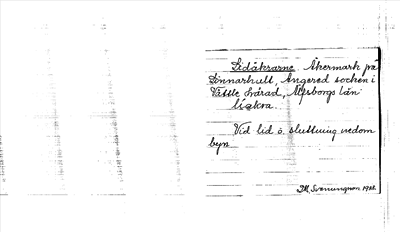 Lidåkrarne Åkermark på
Linnarhult, Angered socken i
Vättle härad, Älfsborgs län
Vid lid o. sluttning nedom
byn
Sveningson